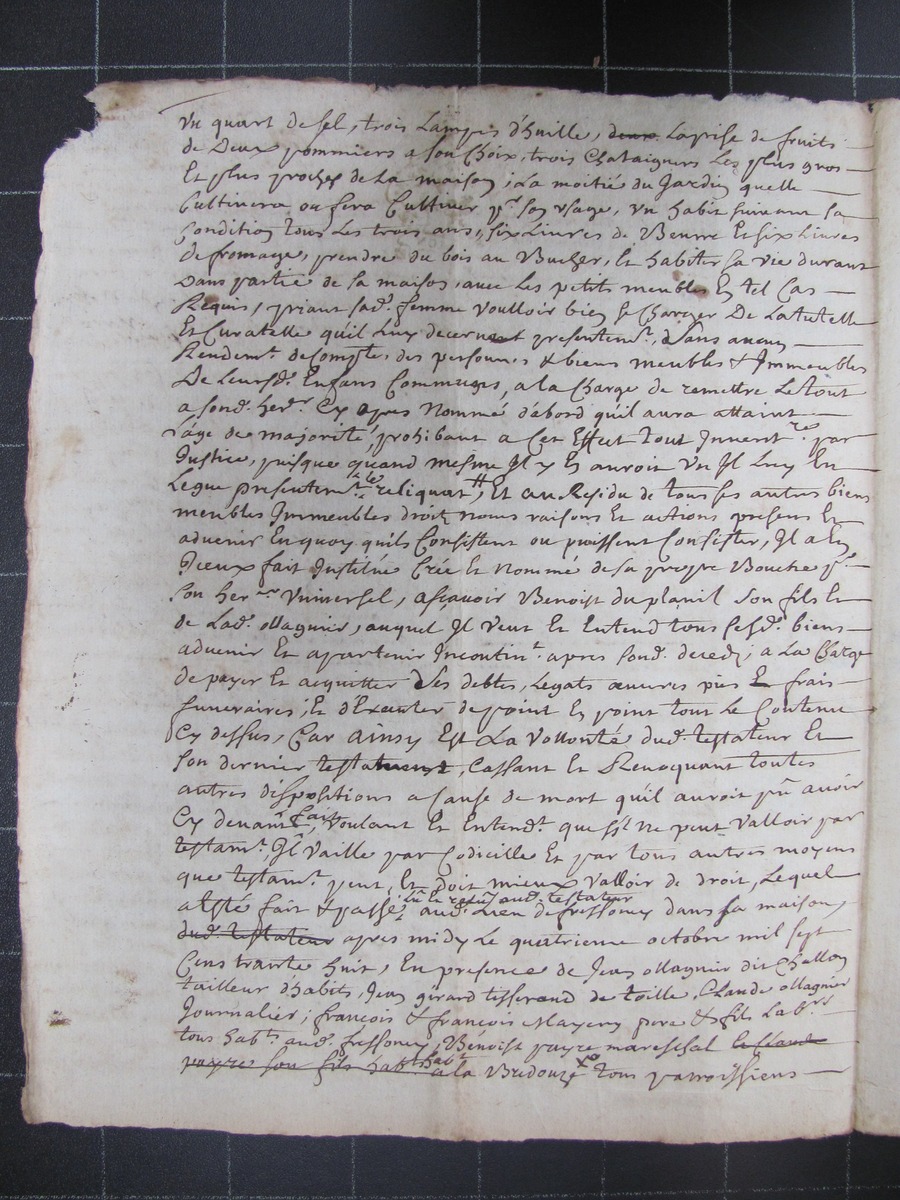 Un quart de sel, trois Lampes d'huille, deux La prise de fruits
de Deux pommiers a son Choix, trois Chataigners Les plus gros
Et plus proches de La maison, La moitié du Jardin quelle
Cultivera ou fera Cultiver pr son usage, un habit suivant sa
Condition tous Les trois ans, six Livres de Beurre Et six Livres
de fromage, prendre du bois au Bucher, Et habiter sa vie durant
Dans partie de sa maison, avec Les petits meubles En tel Cas
Requis, priant sad. femme voulloir bien se Charger De La tutelle
Et Curatelle quil Luy decernent presentemt, Sans aucun
Rendemt de Compte, des personnes & biens meubles & Immeubles
De Leursd. Enfans Communs, a la Charge de remettre Le tout
a sond. herr Cy apres Nommé d'abord quil aura attaint
L'age de majorité, prohibant a Cet Effet tout Inventre par
Justice, puisque quand mesme Il y En auroit un Il Luy En
Legue presentemt le reliquat, Et au Residu de tous ses autres biens
meubles Immeubles droits noms raisons Et actions presens Et
advenir En quoy quils Consistent ou puissent Consister, Il a En
Iceux fait Institué Crée Et Nommé de sa propre Bouche pr
son herer Universel, asçavoir Benoist du planil son fils Et
de Lad. Magnier, auquel Il veut Et Entend tous sesd. biens
advenir Et apartenir Incontint apres sond. deceds, a La Charge
de payer Et acquitter Ses debtes, Legats œuvres pies Et frais
funeraires, Et d'Executer de point En point tout Le Contenu
Cy dessus, Car ainsy Est La Vollonté dud. testateur Et
son dernier testament, Cassant Et Revoquant toutes
autres dispositions a Cause de mort quil auroit pu avoir
Cy devant fait, voulant Et Entendt que s'il ne peut Valloir par
testamt, Il Vaille par Codicille Et par tous autres moyens
que testamt peut, Et doit mieux Valloir de droit, Lequel
lu Et relu aud. testateur
a Esté fait & passé aud. Lieu de fressoney dans sa maison,
dud. testateur apres midy Le quatrieme octobre mil sept
Cens trante huit, En presence de Jean Magnier dit Challon
tailleur d'habits, Jean girard tisserand de toille, Claude Magnier
Journalier, francois & francois Mayery pere & fils Labrs
tous habts aud. fressoney, Benoist payre mareschal Et Claude
payre son fils habt habt a la Bridouze tous parroissiens